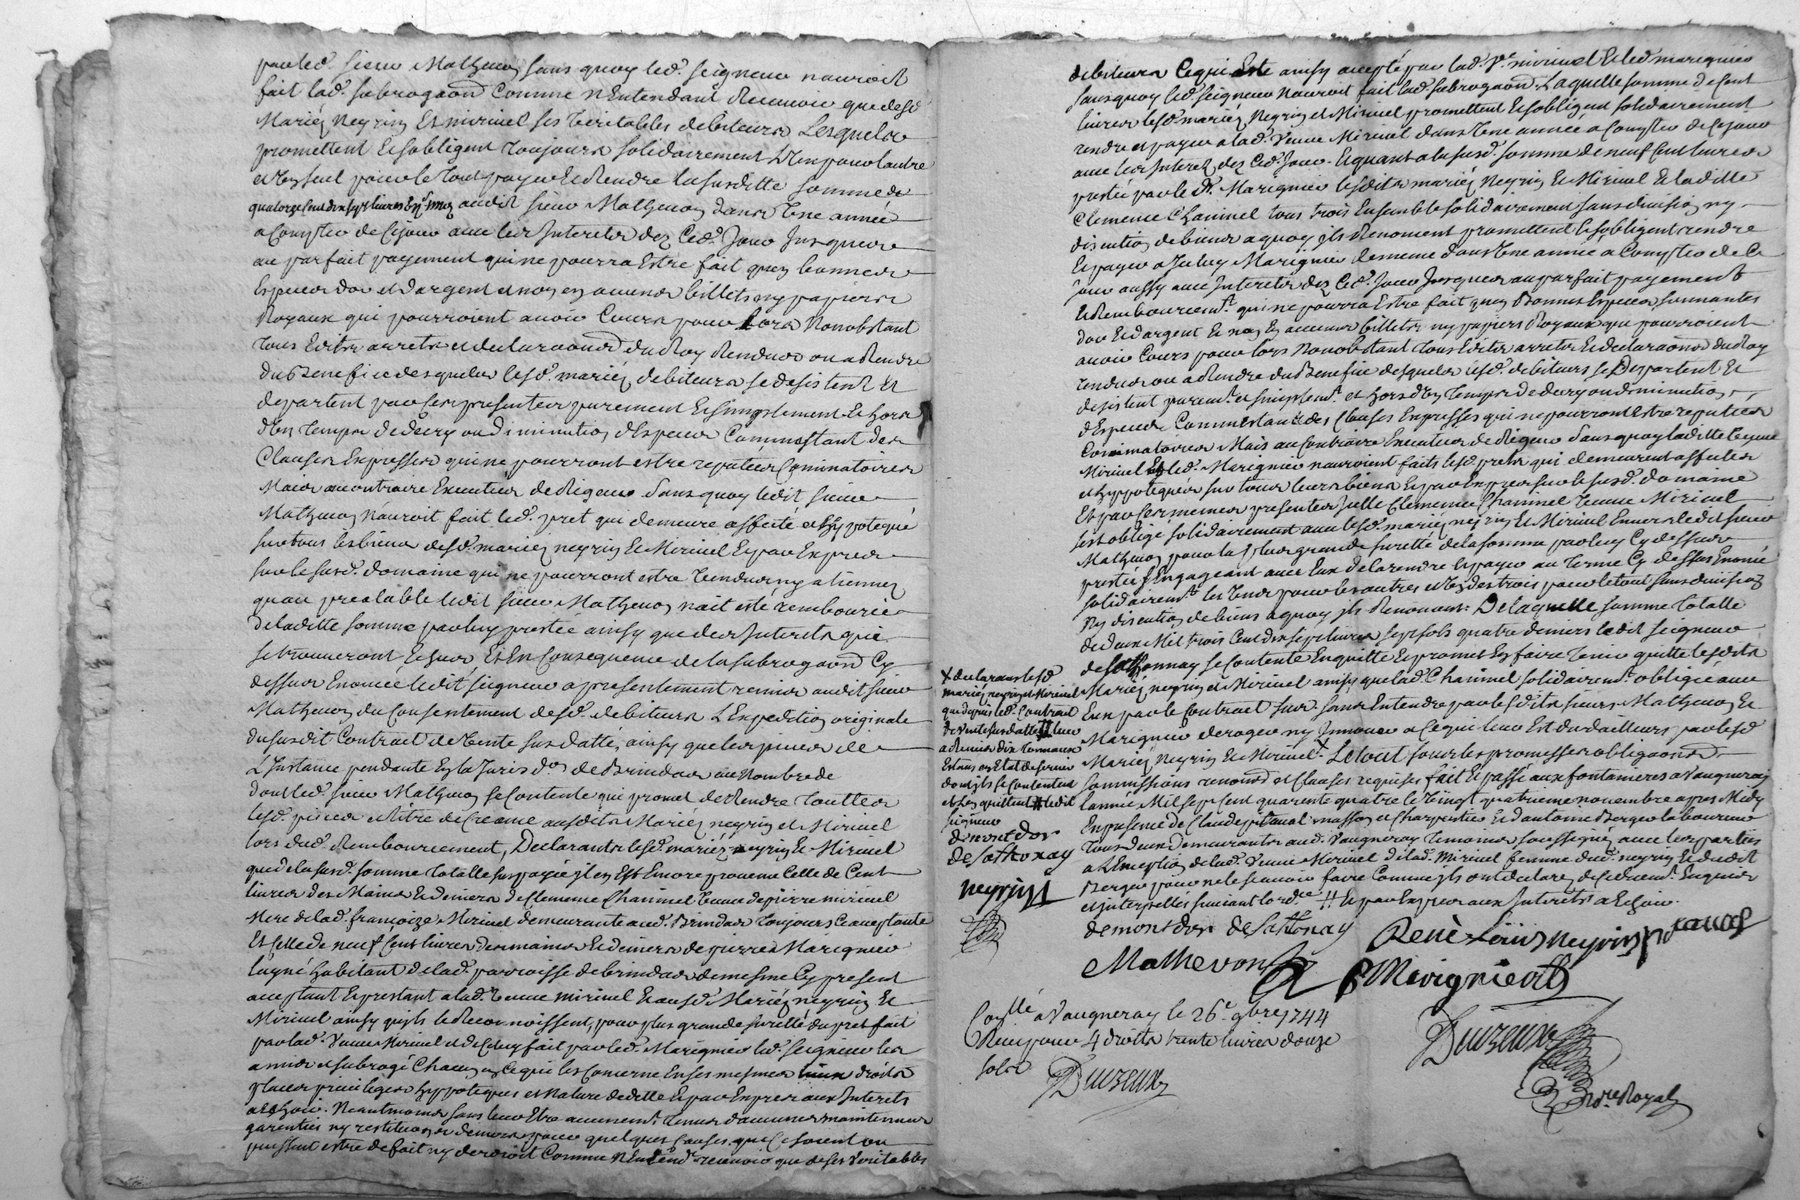 par led. sieur Mathevon sans quoy led. seigneur nauroit
fait lad. subrogaon Comme nEntendant Recevoir que desd
Mariés Neyrin Et mirieul ses veritables debiteurs Lesquels
promettent Et sobligent toujours solidairement L'un pour l'autre
et un seul pour le tout payer Et Rendre la susditte somme de
quatorze Cent dix sept livres audit sieur Mathevon dans Une année
a Compter de Ce jour avec les Interets dez Ced. Jour Jusques
au parfait payement qui ne pourra Estre fait quen bonnes
Especes dor et dargent et non en aucuns billets ny papiers
Royaux qui pourroient avoir Cours pour Lors Nonobstant
tous Edits arrets et declaraons du Roy Rendus ou a Rendre
du Benefice desquels lesd. mariés debiteurs se desistent Et
departent par ses presentes purement Et simplement Et hors
d'Un temps de decry ou diminution d'Especes Comme
Clauses Expresses qui ne pourront estre reputées Cominatoires
Mais au contraire Executées de Rigeur sans quoy ledit sieur
Mathevon Nauroit fait led. pret qui demeure affecté et hypotequé
sur tous les biens desd. mariés neyrin Et Mirieul Et par Exprès
sur le susd. domaine qui ne pourront estre Vendus ny alienez
quau prealable ledit sieur Mathevon nait esté remboursé
de laditte somme par luy prestée ainsy que des Interets qui
se trouveront Echus Et En Consequence de la subrogaon Cy
dessus Enoncée ledit seigneur a presentement remis audit sieur
Mathevon du Consentement desd. debiteurs L'Expedition originale
du susdit Contrat de Vente susdatté, ainsy que les pieces de
L'Instance pendante En la Jurisdon de Brindas au Nombre de
dont led. sieur Mathevon se Contente qui promet de Rendre toutes
lesd. pieces et titre de Creance ausdits Mariés neyrin et Mirieul
lors dud. Remboursement, Declarants lesd. mariés neyrin Et Mirieul
que de la susd. somme totalle sus payée il en Est Encore provenu Celle de Cent
livres des Mains Et deniers de Clemence Chaninel Veuve de pierre mirieul
Mere de lad. françoize Mirieul demeurante aud. Brindas toujours Ci acceptante
Et Celle de neuf Cent livres des mains Et deniers de pierre Marignier
layné habitant de lad. parroisse de brindas de mesme Cy present
acceptant Et prestant a lad. Veuve mirieul Et ausd. Mariés neyrin Et
Mirieul ainsy quils le Reconnoissent, pour plus grande sureté du pret fait
par lad. Veuve Mirieul et de Celuy fait par led. Marignier led. seigneur les
a mis et subrogé Chacun en Ce qui les Concerne En ses mesmes droits
places privileges hypoteques et Nature de dette Et par Exprès aux Interets
a Echoir. Neantmoins sans leur Etre aucunemt. tenus daucunes maintenues
garenties ny restitution de deniers pour quelques Causes que Ce soient ou
puissent estre de fait ny de droit Comme N'Entendt recevoir que de ses Veritables
debiteurs Ce qui Est ainsy accepté par lad. Ve. mirieul Et led. marignier
sans quoy led. seigneur Nauroit fait lad. subrogaon. Laquelle somme de Cent
livres lesd. mariés Neyrin et Mirieul promettent Et sobligent solidairement
rendre et payer a lad. Veuve Mirieul dans Une année a Compter de Ce jour
avec les Interets dez Ced. Jour. Et quant a la susd. somme de neuf Cent livres
prestée par led. Sr. Marignier lesdits mariés Neyrin Et Mirieul Et laditte
Clemence Chaninel tous trois Ensemble solidairement sans division ny
discution de biens a quoy ils Renoncent promettent Et sobligent rendre
Et payer a Iceluy Marignier de mesme dans Une année a Compter de Ce
jour aussy avec Interets dez Ced. Jour Jusques au parfait payement
et Remboursemt. qui ne pourra Estre fait quen Bonnes Especes sonnantes
dor Et dargent Et non En aucuns billets ny papiers Royaux qui pourroient
avoir Cours pour lors Nonobstant tous Edits arrets Et declaraons du Roy
rendus ou a Rendre du Benefice desquels lesd. debiteurs se Departent Et
desistent puremt. et simplemt. et hors d'Un temps de decry ou diminution
d'Especes Comme Clauses Expresses qui ne pourront Estre reputées
Cominatoires Mais au Contraire Executées de Rigeur Sans quoy laditte Veuve
Mirieul Et led. Marignier nauroient faits lesd. prets qui demeurent affectés
et hypotequés sur tous leurs biens Et par Exprès sur le susd. domaine
Et par ses mesmes presentes Icelle Clemence Chaninel Veuve Mirieul
sest obligé solidairement avec lesd. mariés neyrin Et Mirieul Envers ledit sieur
Mathevon pour la plus grande sureté de la somme par luy Cy dessus
prestée s'Engageant avec Eux de la rendre Et payer au terme Cy dessus Enoncé
solidairemt. les Uns pour les autres et Un des trois pour le tout sans division
Ny discution de biens a quoy ils Renoncent. De laquelle somme totalle
de deux Mil trois Cent dix sept livres sept sols quatre deniers ledit seigneur
de Sathonnay se Contente Enquitte Et promet En faire tenir quitte lesdits
Mariés neyrin et Mirieul ainsy que lad. Chaninel solidairemt. obligée avec
Eux par le Contract sus sans Entendre par lesdits sieurs Mathevon Et
Marignier deroger ny Innover a Ce qui leur Est du dailleurs par lesd
Mariés Neyrin Et Mirieul. × Le tout sous les promesses obligaons
soumissions renonons et Clauses requises fait Et passé aux fontanieres a Vaugneray
lannée Mil sept Cent quarente quatre le Vingt quatrieme novembre apres Midy
En presence de Claude masson et Charpentier Et dantoine Berger laboureur
tous deux demeurants aud. Vaugneray temoins soussignés avec les parties
a l'Exception de lad. Veuve Mirieul de lad. Mirieul femme dud. neyrin Et dudit
Berger pour ne le scavoir faire Comme ils ont declaré de Ce Enquis
et interpellés suivant lordce. // Et par Exprès aux Interets a Echoir.
× declarants lesd
mariés neyrin Et Mirieul
que depuis led. Contrat
de Vente susdatté leur
a Remis dix tonneaux
Estans en Etat de servir
dont ils se Contentent
et En quittent ledit
seigneur
de mont dor
de Sathonay
neyrin
demontdor de Sathonay
René Louis neyrin
Mathevon
P Marignier
Conllé a Vaugneray le 26e. 9bre 1744
Reçu pour 4 droits trente livres douze
sols
Duizeux
Duizeux
Nore Royal